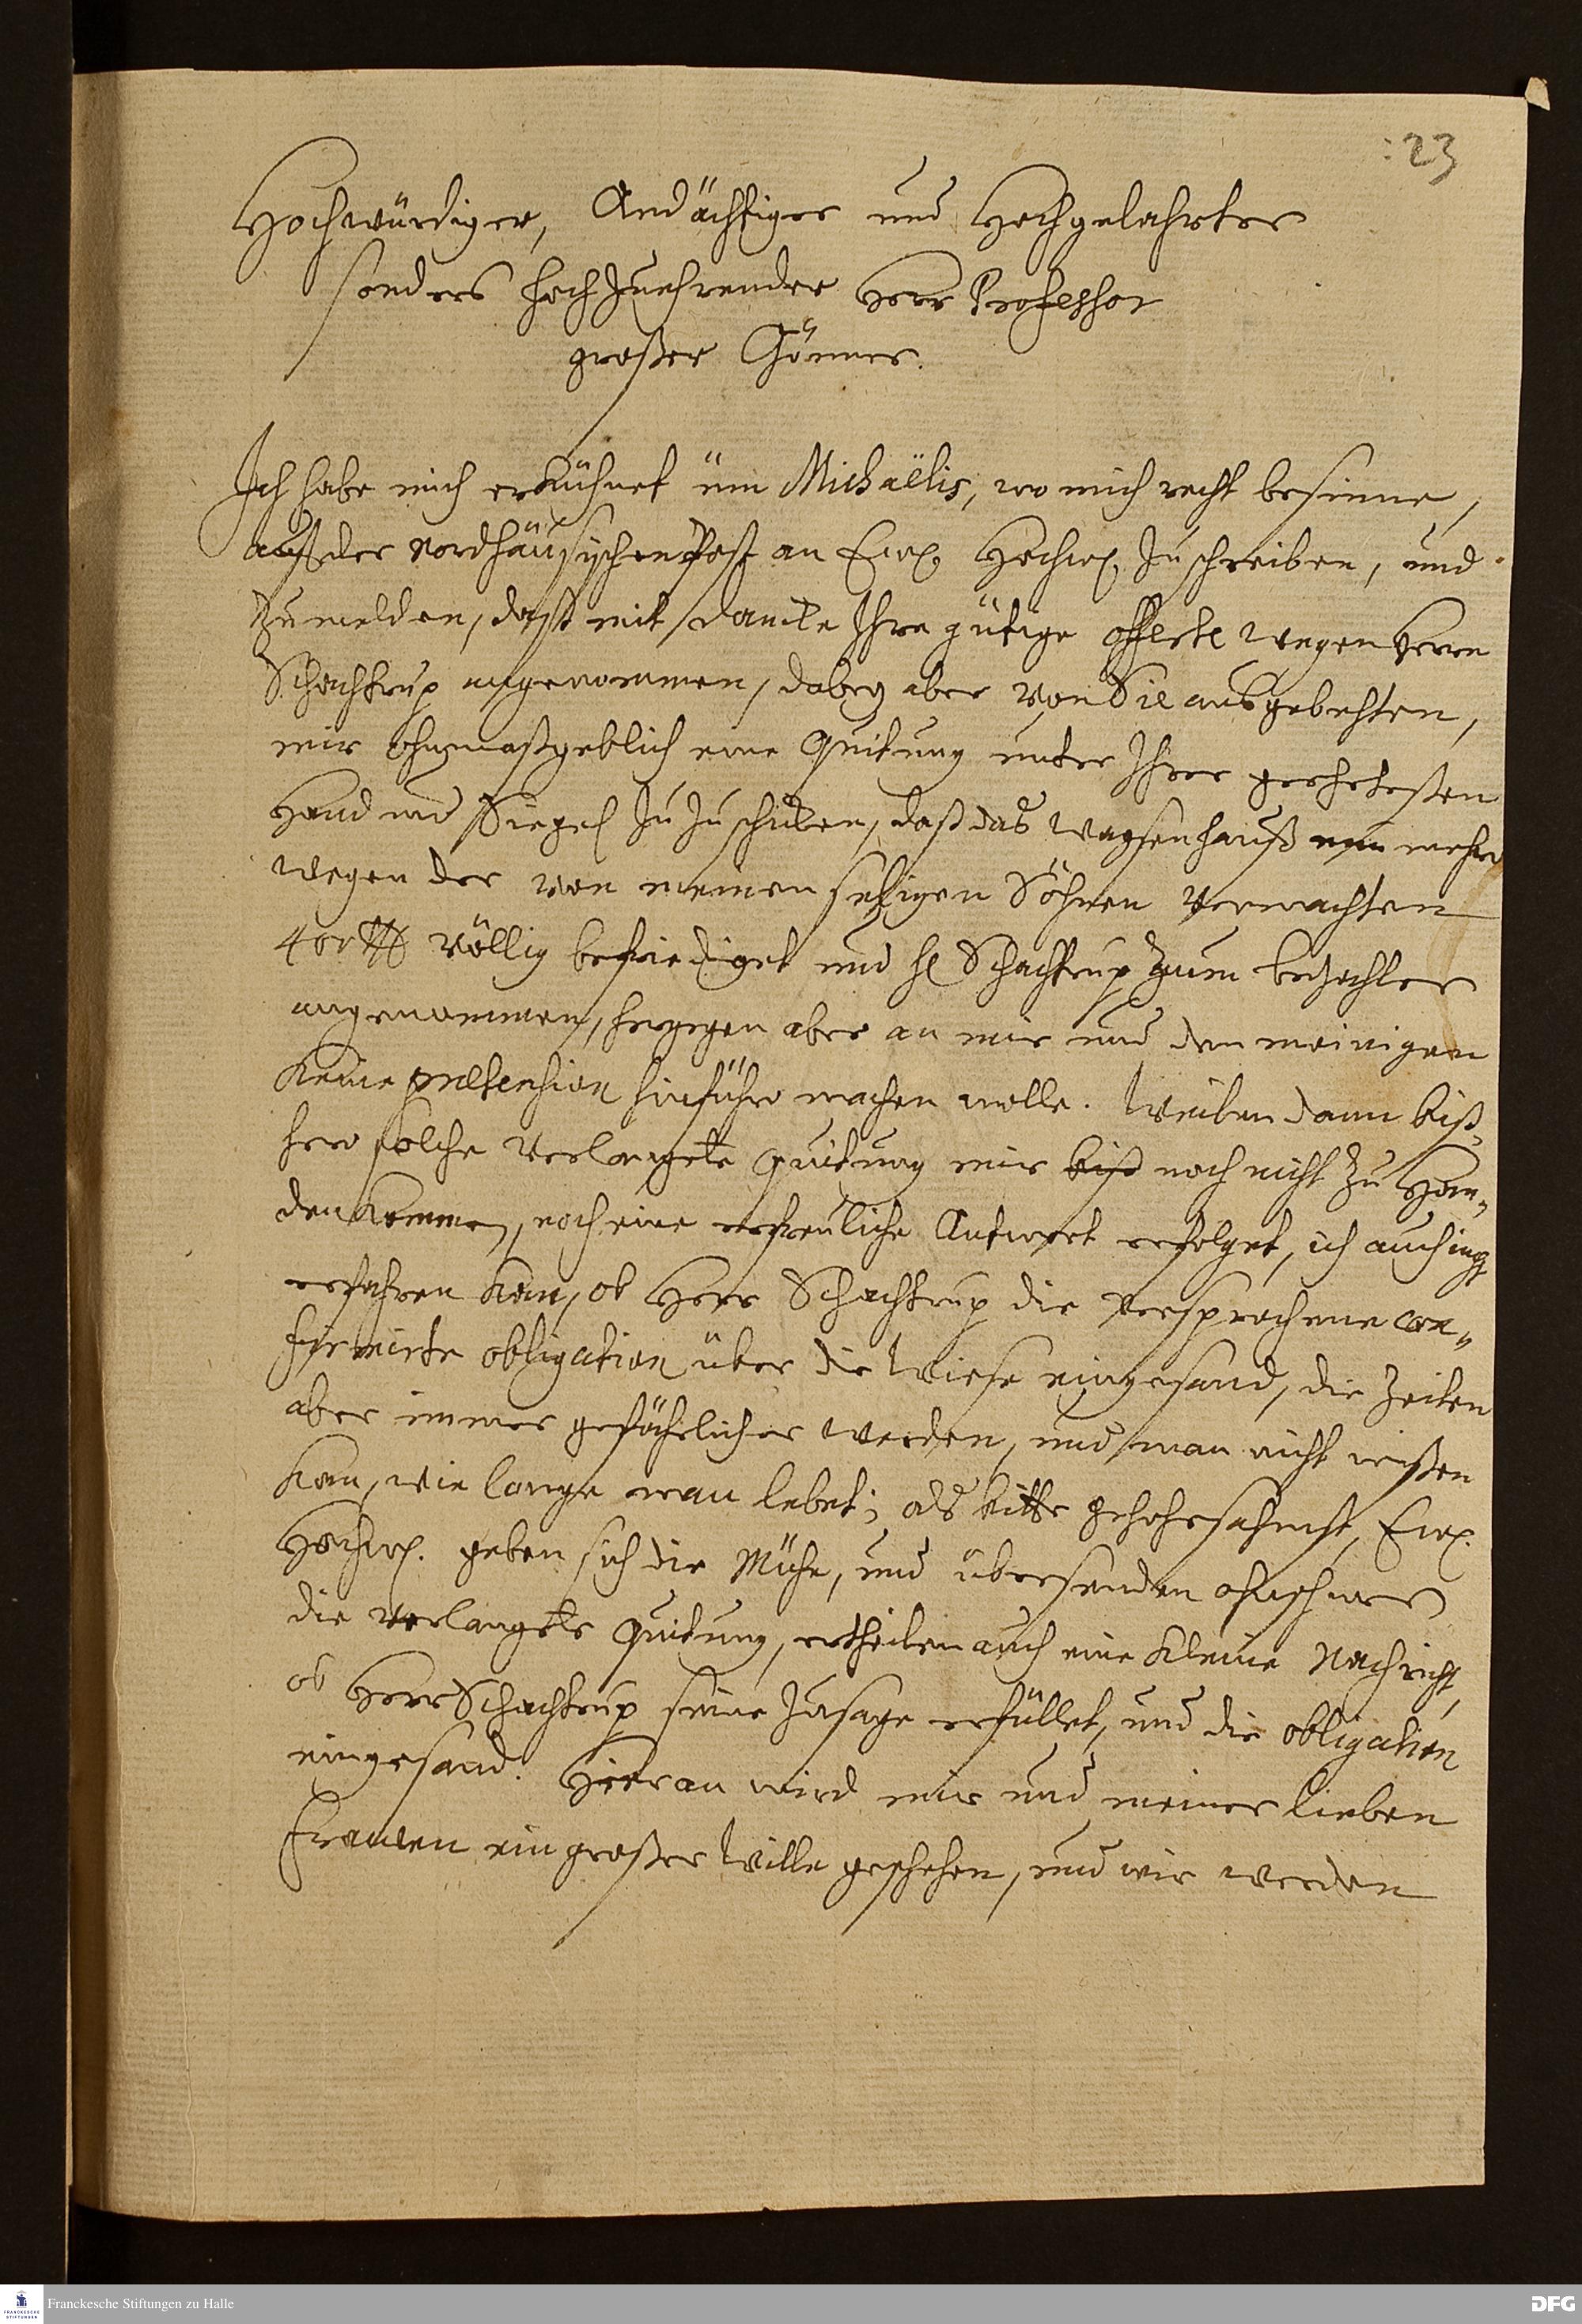 :23
Hochwürdiger, Andächtiger und Hochgelahrter
sonders hochzuehrender Herr Professor
großer Gönner.
Ich habe mich erkühnet üm Michaëlis, wo mich recht besinne,
auf der Nordhäusischen Post an Ew. Hochw. zu schreiben, und
zu melden, daß mit Dancke Ihre gütige offerte wegen Herrn
Schachtrup angenommen, dabey aber von Sie ausgebehten,
mir ohnmaßgeblich eine Quitung unter Ihrer geehrtesten
Hand und Siegel zu zu schicken, daß das Waysenhauß nun mehro
wegen der von meinen sehligen Söhnen vermachten
400 völlig befriediget und H. Schachtrup zum bezahler
angenommen, hergegen aber an mir und den meinigen
keine prætension hinführo machen wolle. Weilen dann biß„
hero solche verlangte Quitung mir biß noch nicht zu Han„
den kommen, noch eine erfreuliche Antwort erfolget, ich auch nicht
erfahren kan, ob Herr Schachtrup die versprochene con„
firmirte obligation über die Wiese eingesand, die Zeiten
aber immer gefährlicher werden, und man nicht wißen
kan, wie lange man lebet; als bitte gehohrsahmst, Ew.
Hochw. geben sich die Mühe, und übersenden ohnschwer
die verlangte Quitung, ertheilen auch eine kleine Nachricht,
ob Herr Schachtrup seine Zusage erfüllet, und die obligation
eingesand. Hieran wird mir und meiner lieben
Frauen ein großer Wille geschehen, und wir werden
Franckesche Stiftungen zu Halle
FRANCKESCHE STIFTUNGEN
DFG